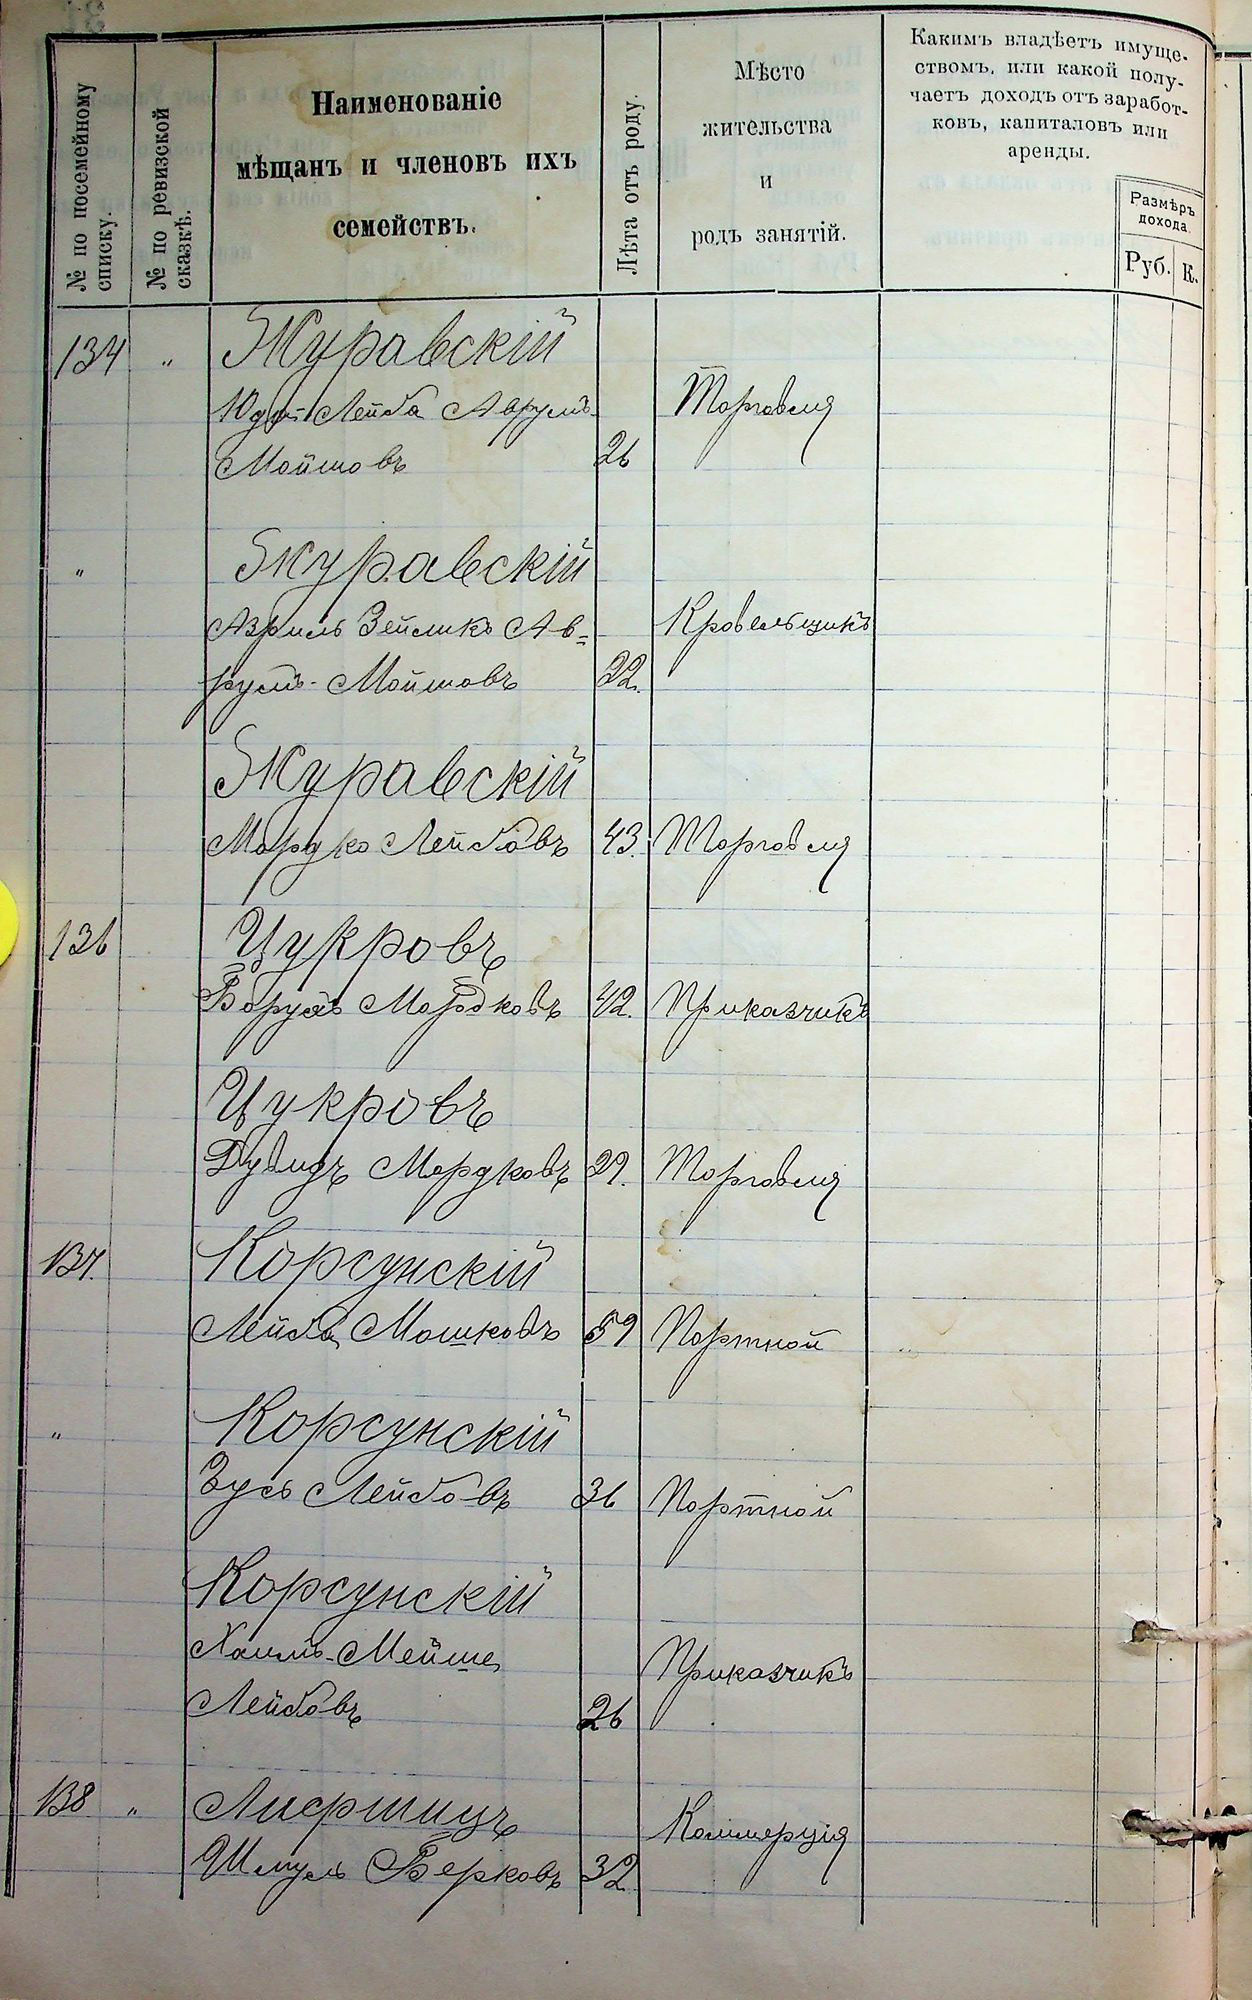 № по посемейному
списку.
№ по ревизской
сказкѣ.
Наименованіе
мѣщанъ и членовъ ихъ
семействъ.
Лѣта отъ роду.
Мѣсто
жительства
и
родъ занятій.
Какимъ владѣетъ имуще-
ствомъ, или какой полу-
чаетъ доходъ отъ заработ-
ковъ, капиталовъ или
аренды.
Размѣръ
дохода
Руб. К.
134 " Журавскій
Юдка Лейба Аврумъ- Торговля
Мойшовъ 26
" Журавскій
Азриль Зейликъ Ав= Кровельщикъ
румъ-Мойшовъ 22.
Журавскій
Мордко Лейбовъ 43. Торговля
136 Цукровъ
Борухъ Мордковъ 42. Приказчикъ
Цукровъ
Дувидъ Мордковъ 29. Торговля
137. Корсунскій
Лейба Мошковъ 59 Портной
" Корсунскій
Зусь Лейбовъ 36 Портной
Корсунскій
Хаимъ-Мейше Приказчикъ
Лейбовъ 26
138 " Лифшицъ Коммерція
Шмуль Берковъ 32